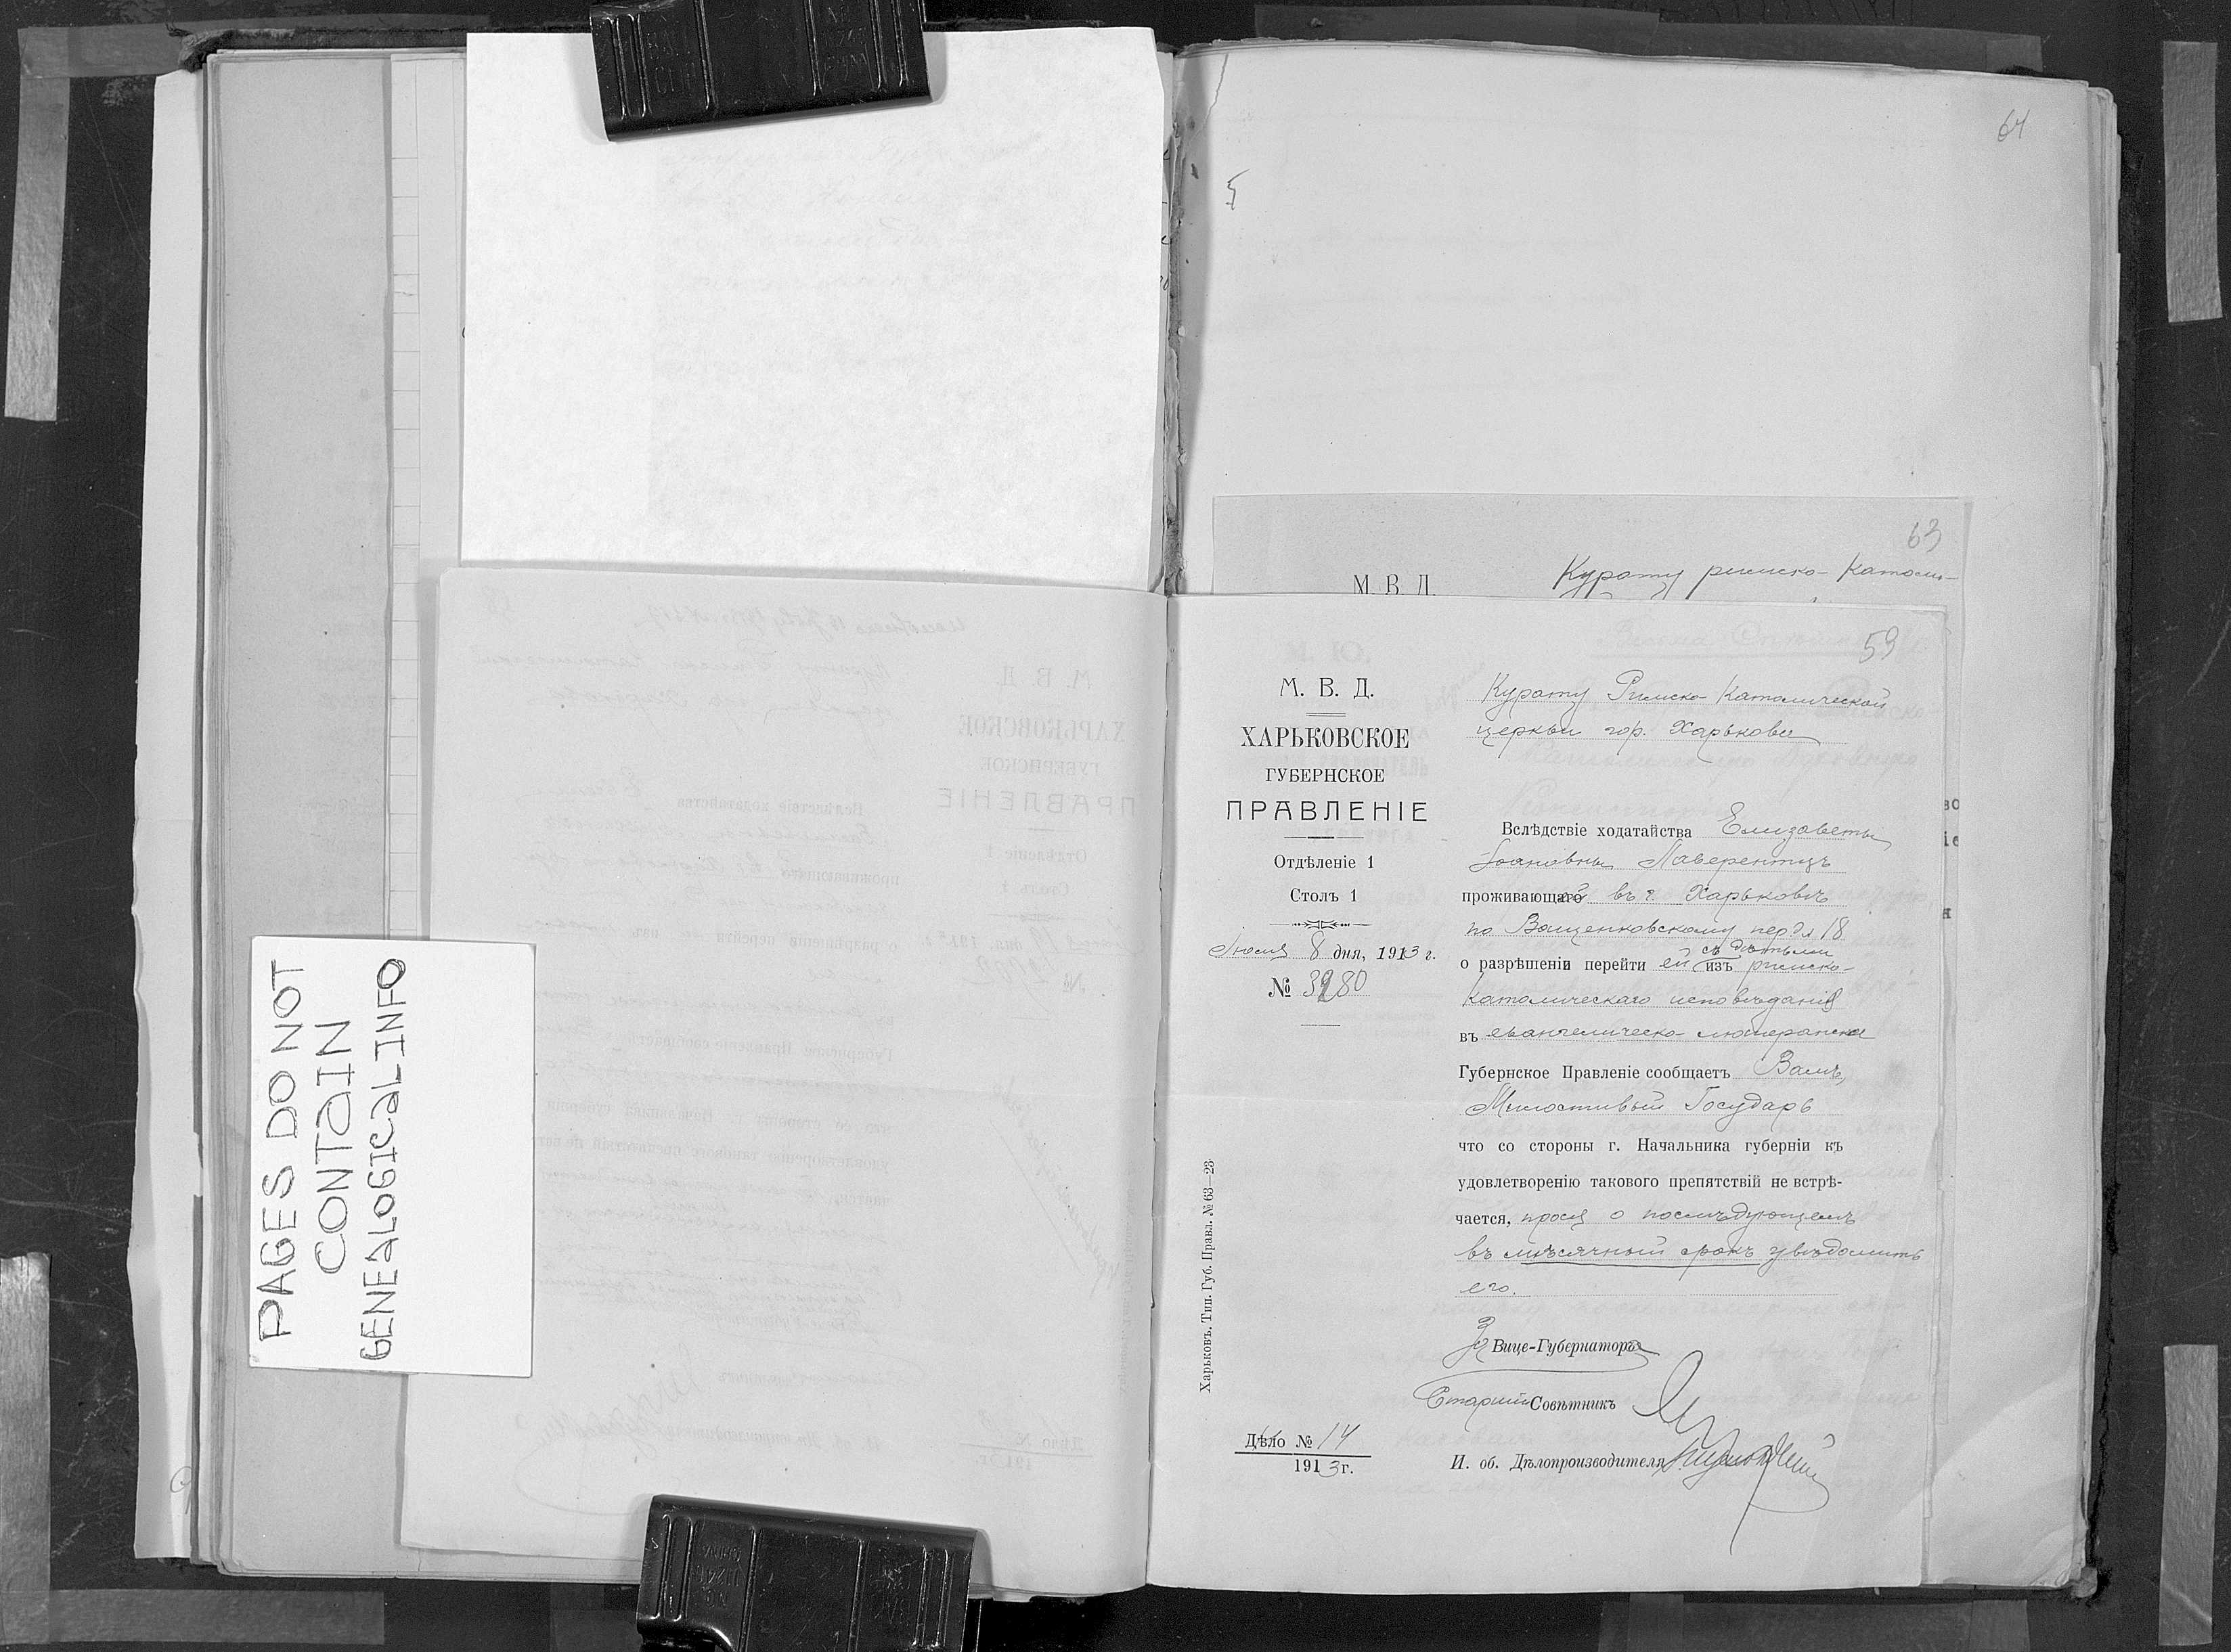 PAGES DO NOT
CONTAIN
GENEALOGICAL INFO
64
63
М. В. Д.
Курату римско-католи-
59
М. В. Д.
ХАРЬКОВСКОЕ
ГУБЕРНСКОЕ
ПРАВЛЕНІЕ
Отдѣленіе 1
Столъ 1
Іюля 8 дня, 1913 г.
№ 3280
Курату Римско-Католической
церкви гор. Харькова
Вслѣдствіе ходатайства Елизаветы
Іоановны Лаверентцъ
проживающей въ г. Харьковѣ
по Ващенковскому пер д 18
съ дѣтьми
о разрѣшеніи перейти ей изъ римско-
католическаго исповѣданія
въ евангелическо-лютеранское
Губернское Правленіе сообщаетъ Вамъ,
Милостивый Государь
что со стороны г. Начальника губерніи къ
удовлетворенію такового препятствій не встрѣ-
чается, прося о послѣдующемъ
въ мѣсячный срокъ увѣдомить
его.
За Вице-Губернатора
Старшій Совѣтникъ
И. об. Дѣлопроизводителя
Дѣло № 14
1913 г.
Харьковъ. Тип. Губ. Правл. № 63—23